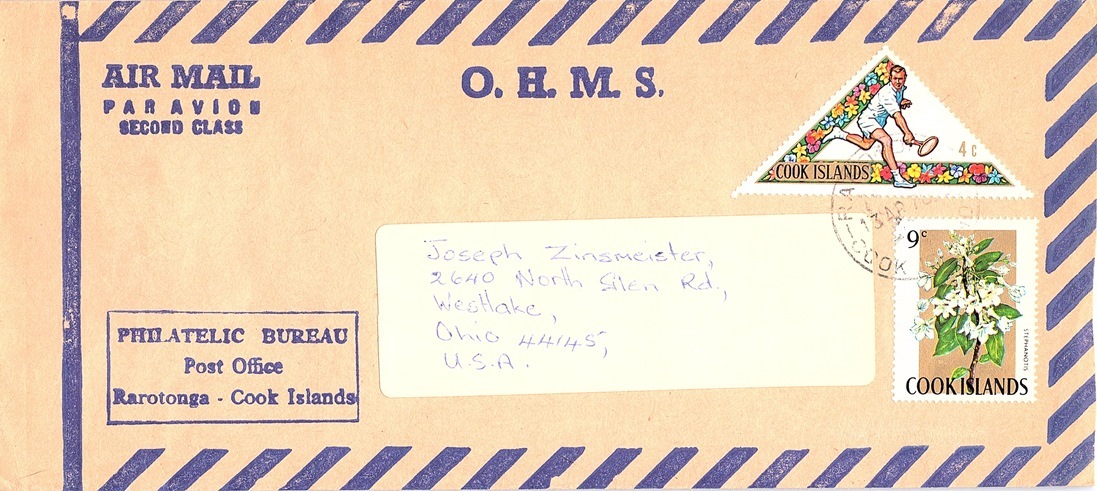 AIR MAIL
PAR AVION
SECOND CLASS
O. H. M. S.
4c
COOK ISLANDS
13 AP
COOK
9c
STEPHANOTIS
COOK ISLANDS
Joseph Zinsmeister,
2640 North Glen Rd.,
Westlake,
Ohio 44145,
U.S.A.
PHILATELIC BUREAU
Post Office
Rarotonga - Cook Islands